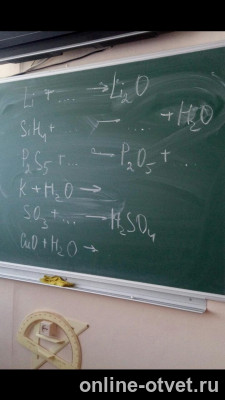 Li + .... → Li₂O
SiH₄ + .... — .... + H₂O
P₂S₅ + ... — P₂O₅ + ...
K + H₂O →
SO₃ + .... → H₂SO₄
CuO + H₂O →
online-otvet.ru